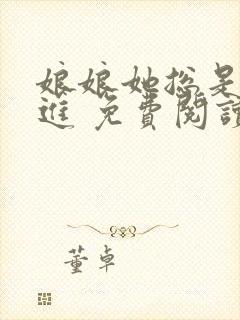 娘娘她总是
進 免費閱讀
董卓